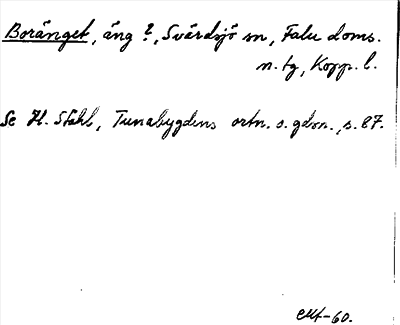 Boränget, äng?, Svärdsjö sn, Falu doms.
n. tg, Kopp. l.
Se H. Ståhl, Tunabygdens ortn. o. gdsn., s. 87.
-60.